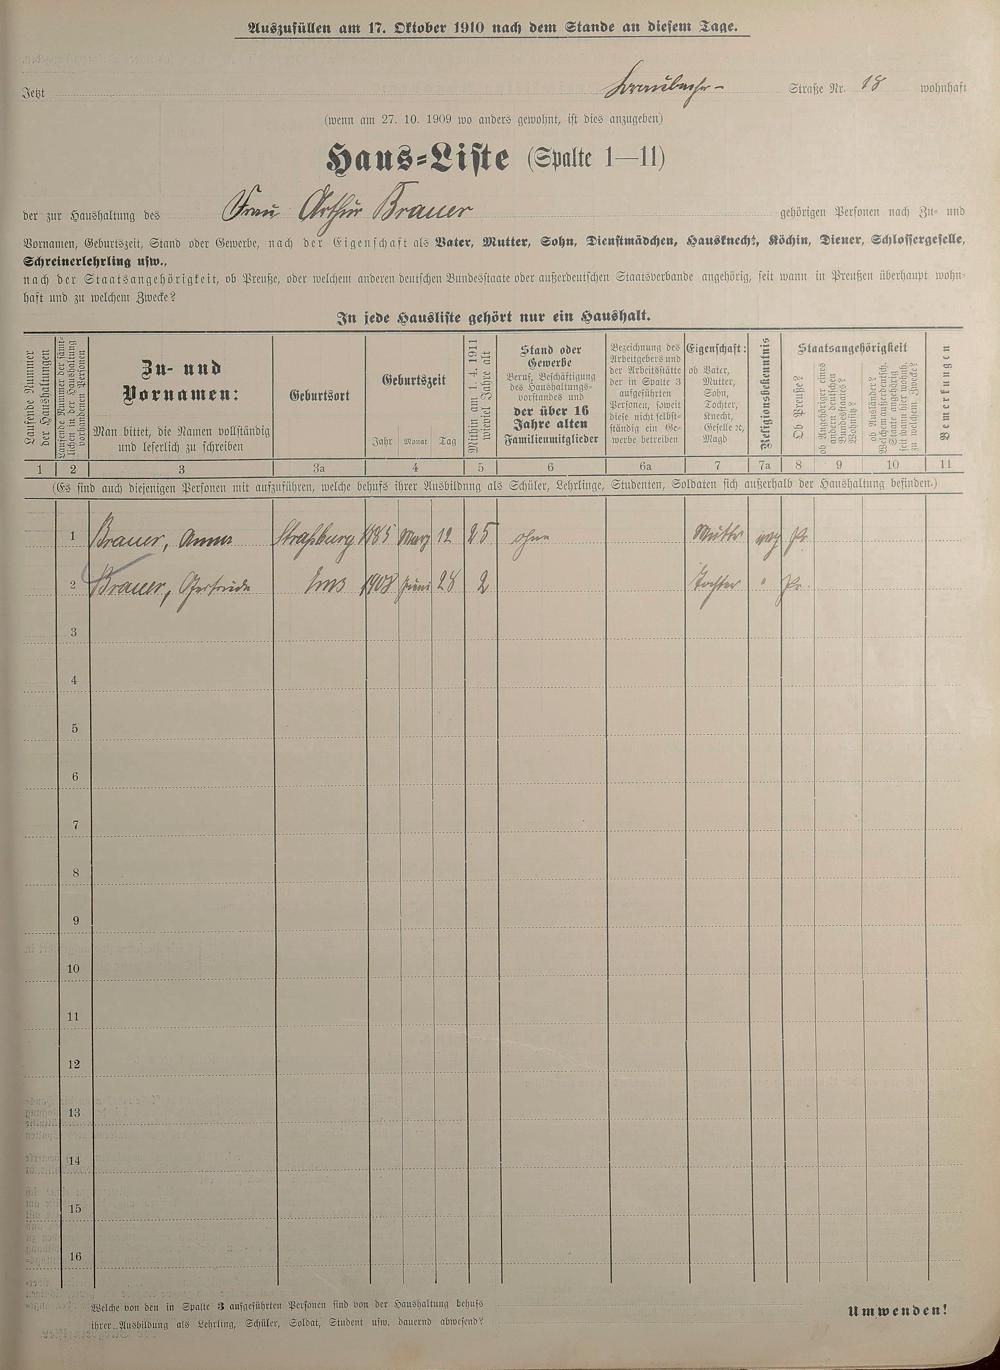 Auszufüllen am 17. Oktober 1910 nach dem Stande an diesem Tage.
Jetzt Straße Nr. 18 wohnhaft
(wenn am 27. 10. 1909 wo anders gewohnt, ist dies anzugeben)
Haus-Liste (Spalte 1—11)
der zur Haushaltung des Frau Arthur Brauer gehörigen Personen nach Zu- und
Vornamen, Geburtszeit, Stand oder Gewerbe, nach der Eigenschaft als Vater, Mutter, Sohn, Dienstmädchen, Hausknecht, Köchin, Diener, Schlossergeselle,
Schreinerlehrling usw.,
nach der Staatsangehörigkeit, ob Preuße, oder welchem anderen deutschen Bundesstaate oder außerdeutschen Staatsverbande angehörig, seit wann in Preußen überhaupt wohn-
haft und zu welchem Zwecke?
In jede Hausliste gehört nur ein Haushalt.
Laufende Nummer der Haushaltungen
Laufende Nummer der sämt-
lichen in der Haushaltung
vorhandenen Personen
Zu- und
Vornamen:
Man bittet, die Namen vollständig
und leserlich zu schreiben
Geburtsort
Geburtszeit
Jahr Monat Tag
Mithin am 1. 4. 1911
wieviel Jahre alt
Stand oder
Gewerbe
Beruf, Beschäftigung
des Haushaltungs-
vorstandes und
der über 16
Jahre alten
Familienmitglieder
Bezeichnung des
Arbeitgebers und
der Arbeitsstätte
der in Spalte 3
aufgeführten
Personen, soweit
diese nicht selbst-
ständig ein Ge-
werbe betreiben
Eigenschaft:
ob Vater,
Mutter,
Sohn,
Tochter,
Knecht,
Geselle ꝛc,
Magd
Religionsbekenntnis
Staatsangehörigkeit
Ob Preuße?
ob Angehöriger eines
andern deutschen
Bundesstaates?
Wohnitz?
ob Ausländer?
Welchem außerdeutsch.
Staate angehörig
seit wann hier wohnh.
zu welchem Zwecke?
Bemerkungen
1 2 3 3a 4 5 6 6a 7 7a 8 9 10 11
(Es sind auch diejenigen Personen mit aufzuführen, welche behufs ihrer Ausbildung als Schüler, Lehrlinge, Studenten, Soldaten sich außerhalb der Haushaltung befinden.)
1 Brauer, Anna Straßburg 1885 März 12 25 ohne Mutter evg Pr.
2 Brauer, Gertrude Ems 1908 Juni 28 2 Tochter " Pr.
3
4
5
6
7
8
9
10
11
12
13
14
15
16
Welche von den in Spalte 3 aufgeführten Personen sind von der Haushaltung behufs
ihrer Ausbildung als Lehrling, Schüler, Soldat, Student usw. dauernd abwesend?
Umwenden!